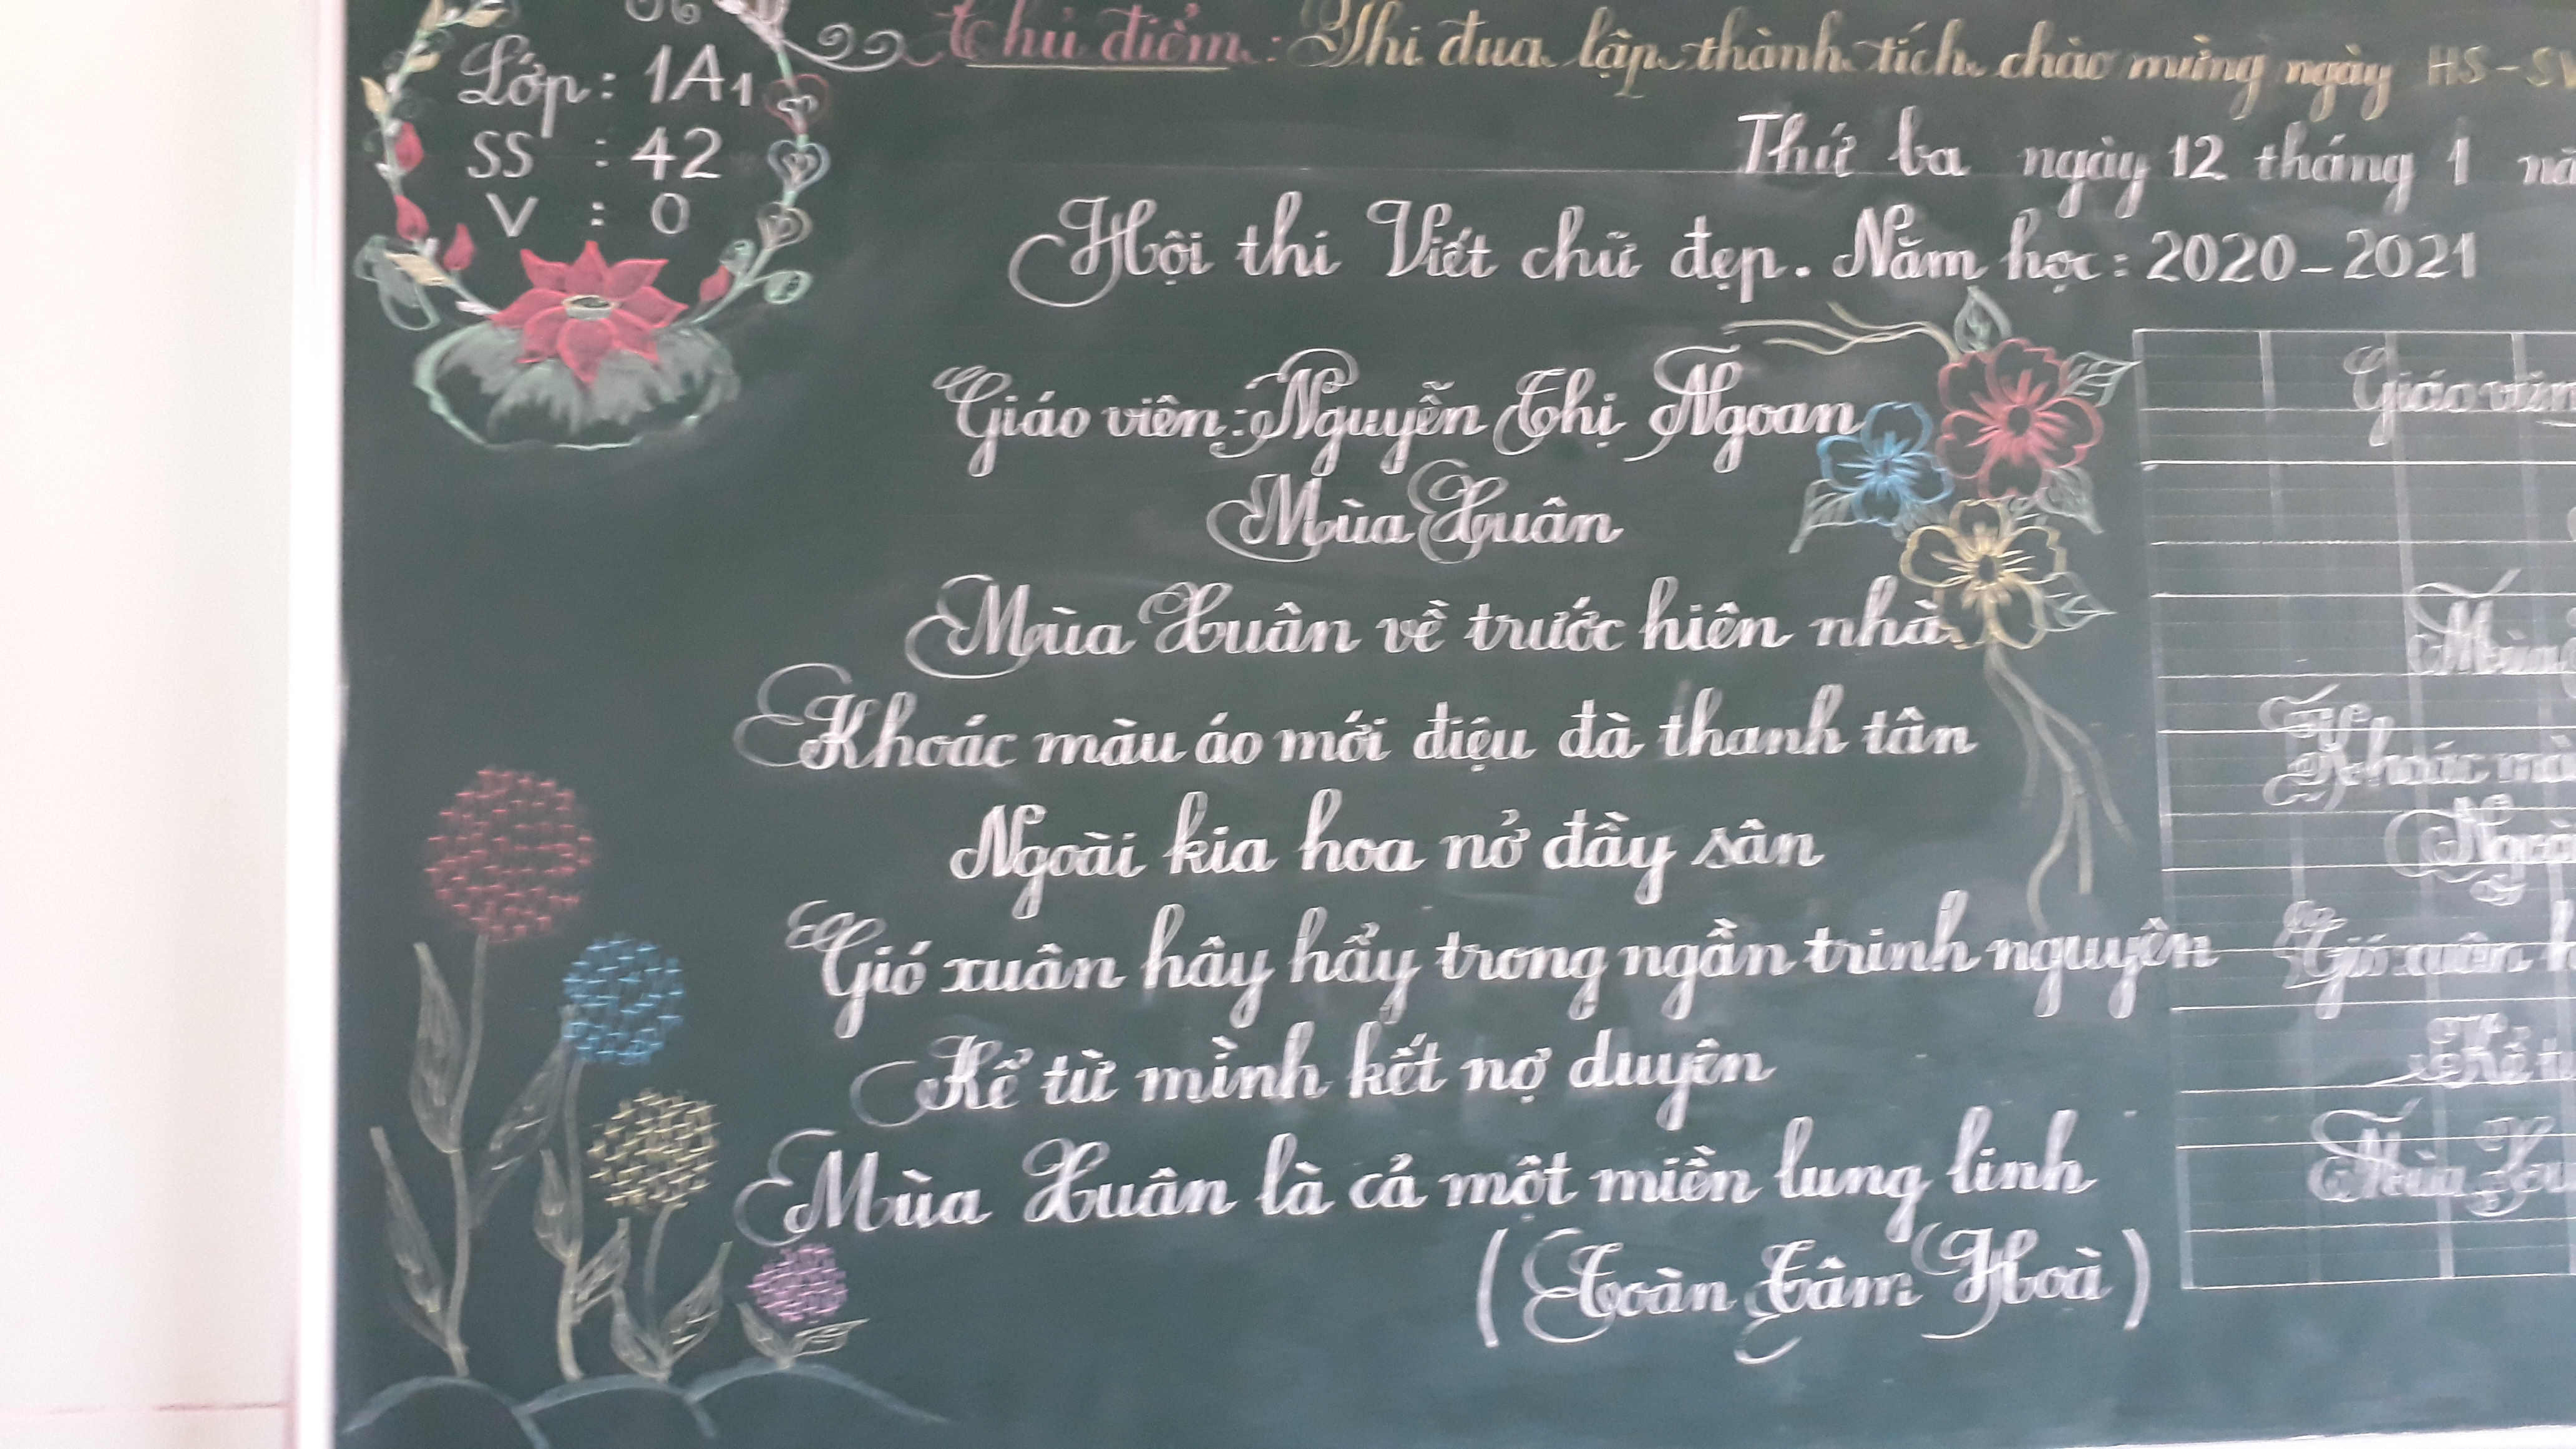 Lớp : 1A1
SS : 42
V : 0
Chủ điểm: Thi đua lập thành tích chào mừng ngày HS-SV
Thứ ba ngày 12 tháng 1
Hội thi Viết chữ đẹp. Năm học: 2020-2021
Giáo viên: Nguyễn Thị Ngoan
Mùa Xuân
Mùa Xuân về trước hiên nhà
Khoác màu áo mới điệu đà thanh tân
Ngoài kia hoa nở đầy sân
Gió xuân hây hẩy trong ngần trinh nguyên
Kể từ mình kết nợ duyên
Mùa Xuân là cả một miền lung linh
(Toàn Tâm Hoà)
Giáo viên
Khoác
Gió xuân
Mùa